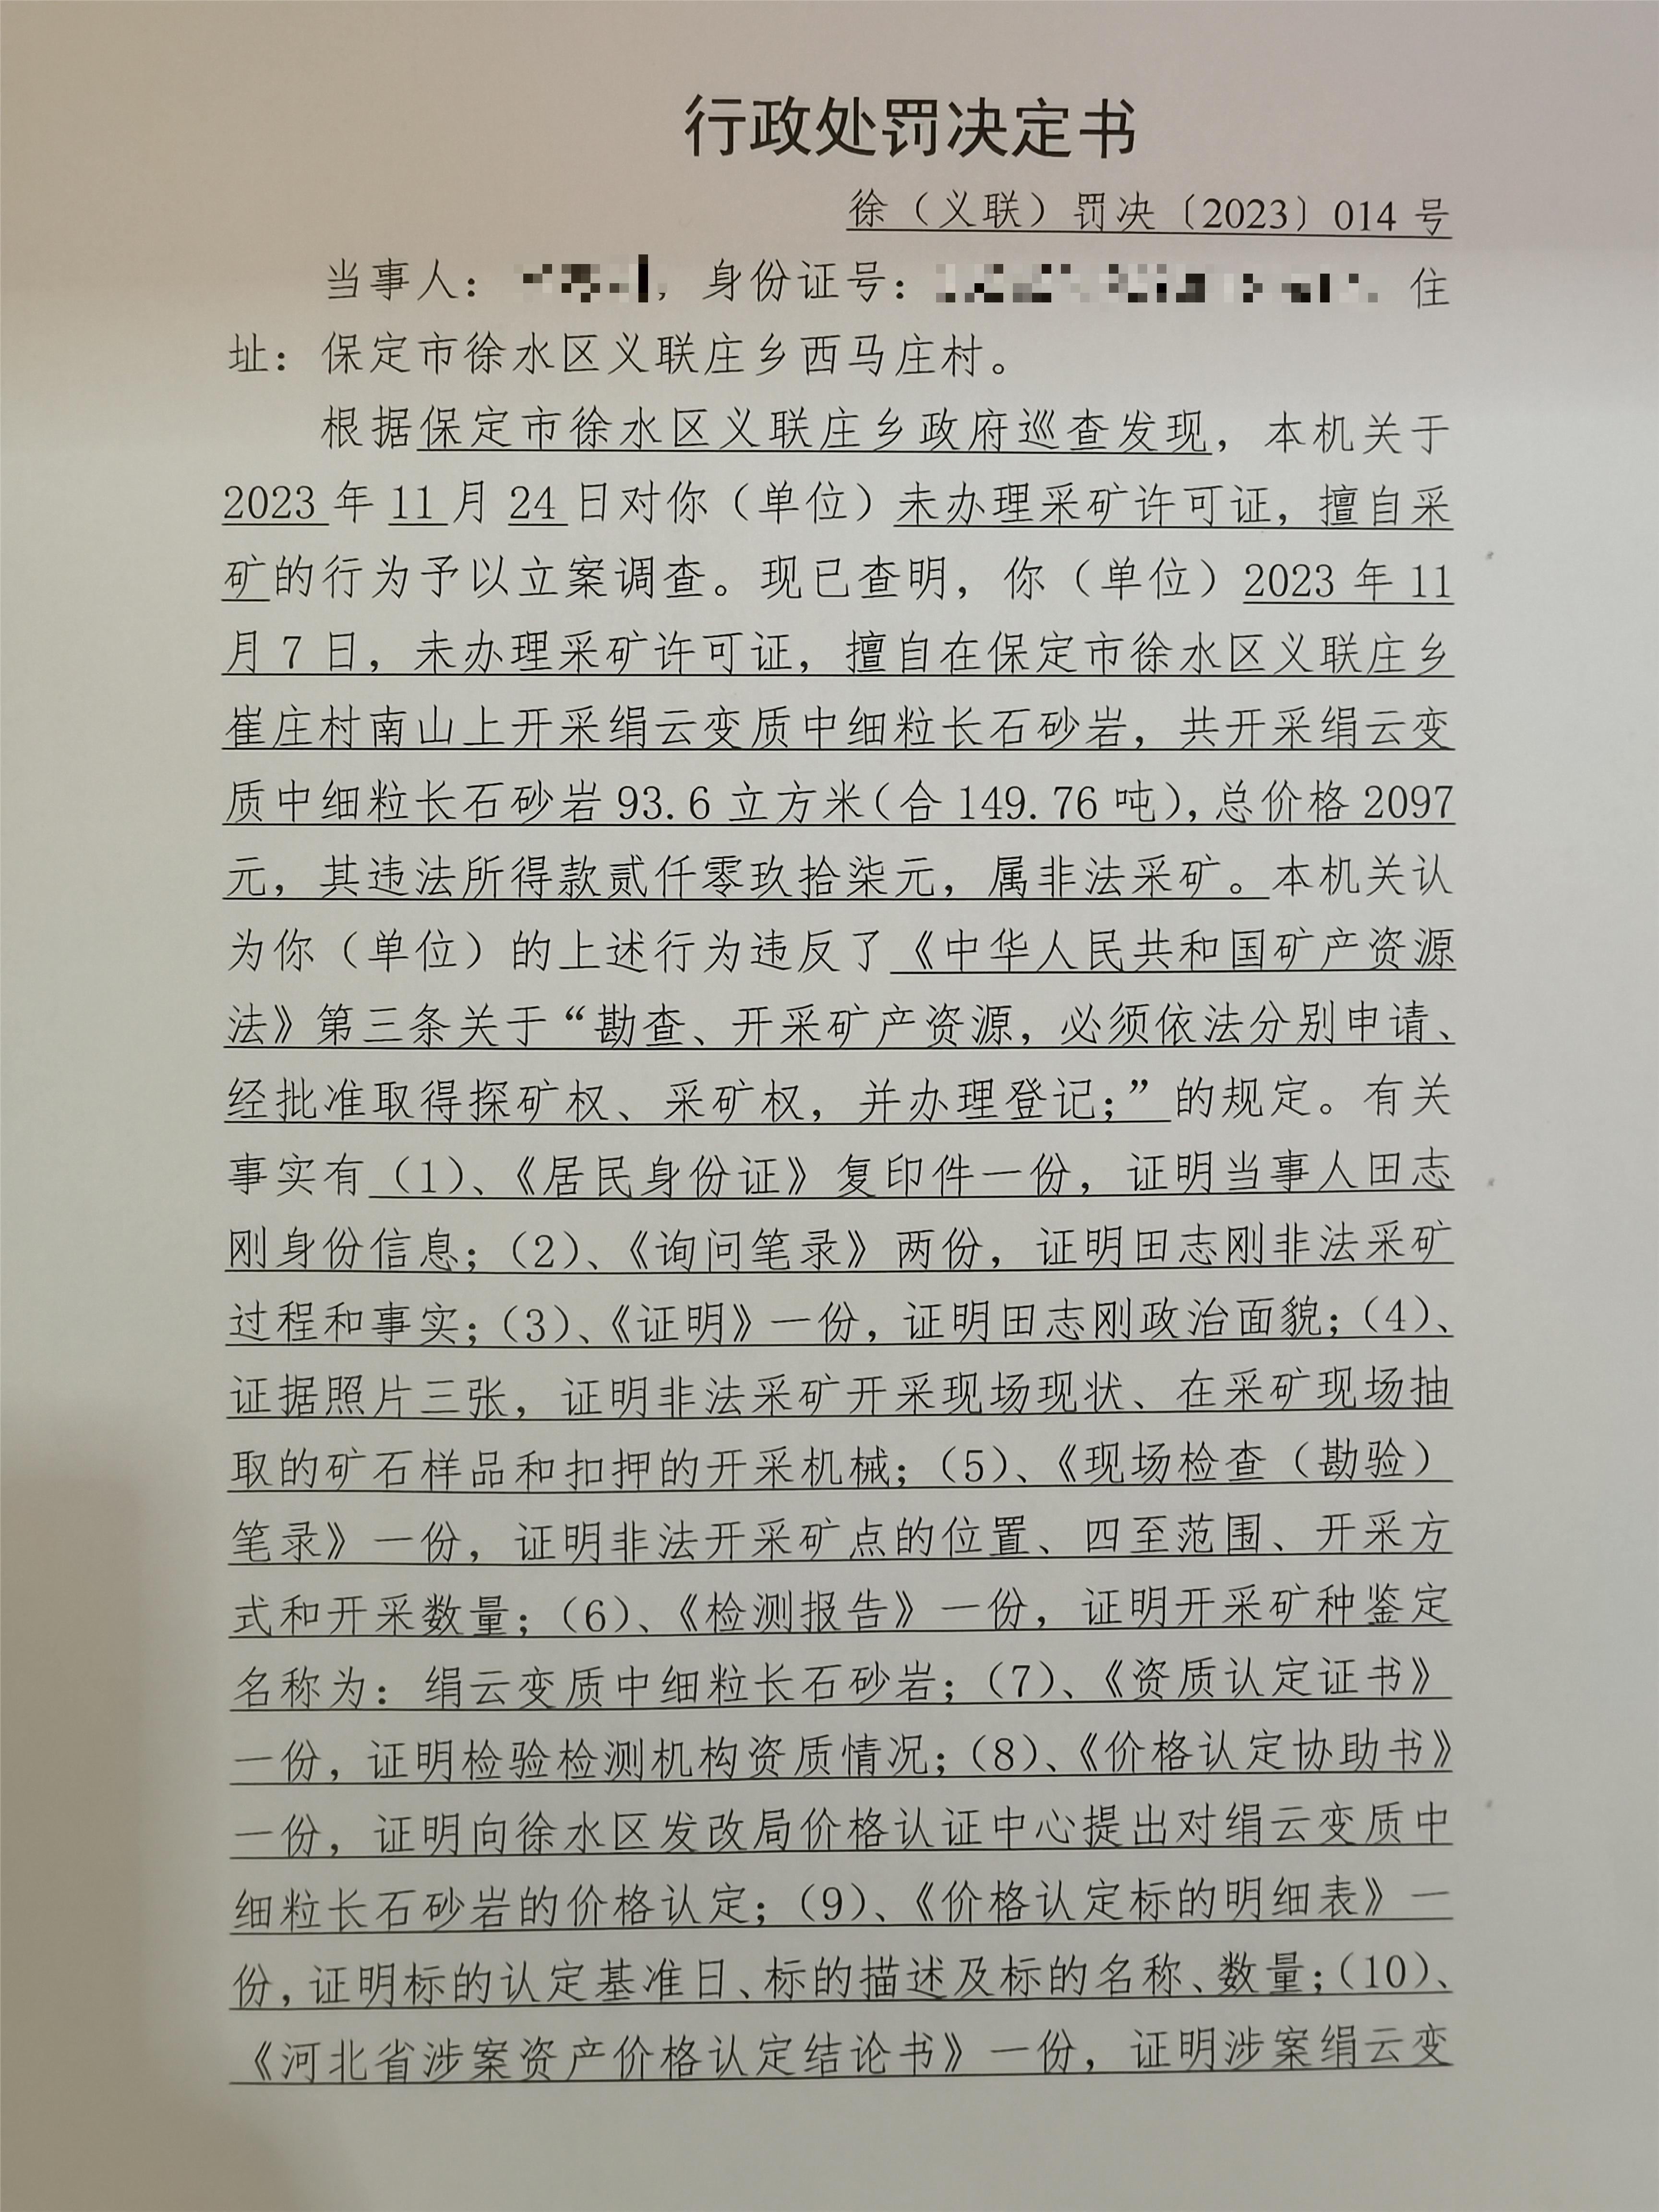 行政处罚决定书
徐（义联）罚决〔2023〕014 号
当事人：，身份证号：住
址：保定市徐水区义联庄乡西马庄村。
根据保定市徐水区义联庄乡政府巡查发现，本机关于
2023 年 11 月 24 日对你（单位）未办理采矿许可证，擅自采
矿的行为予以立案调查。现已查明，你（单位）2023 年 11
月 7 日，未办理采矿许可证，擅自在保定市徐水区义联庄乡
崔庄村南山上开采绢云变质中细粒长石砂岩，共开采绢云变
质中细粒长石砂岩 93.6 立方米（合 149.76 吨），总价格 2097
元，其违法所得款贰仟零玖拾柒元，属非法采矿。本机关认
为你（单位）的上述行为违反了《中华人民共和国矿产资源
法》第三条关于“勘查、开采矿产资源，必须依法分别申请、
经批准取得探矿权、采矿权，并办理登记；”的规定。有关
事实有（1）、《居民身份证》复印件一份，证明当事人田志
刚身份信息；（2）、《询问笔录》两份，证明田志刚非法采矿
过程和事实；（3）、《证明》一份，证明田志刚政治面貌；（4）、
证据照片三张，证明非法采矿开采现场现状、在采矿现场抽
取的矿石样品和扣押的开采机械；（5）、《现场检查（勘验）
笔录》一份，证明非法开采矿点的位置、四至范围、开采方
式和开采数量；（6）、《检测报告》一份，证明开采矿种鉴定
名称为：绢云变质中细粒长石砂岩；（7）、《资质认定证书》
一份，证明检验检测机构资质情况；（8）、《价格认定协助书》
一份，证明向徐水区发改局价格认证中心提出对绢云变质中
细粒长石砂岩的价格认定；（9）、《价格认定标的明细表》一
份，证明标的认定基准日、标的描述及标的名称、数量；（10）、
《河北省涉案资产价格认定结论书》一份，证明涉案绢云变